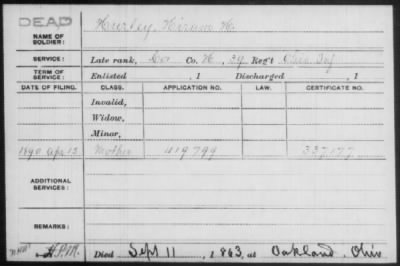 DEAD
NAME OF SOLDIER: Hurley, Hiram H.
SERVICE: Late rank, Co. H, 39 Reg't Ohio Inf
TERM OF SERVICE: Enlisted , 1 Discharged , 1
DATE OF FILING. CLASS. APPLICATION NO. LAW. CERTIFICATE NO.
Invalid,
Widow,
Minor,
1890 Apr. 12 Mother 419799 337177
ADDITIONAL SERVICES:
REMARKS:
Died Sept 11, 1863, at Oakland, Ohio